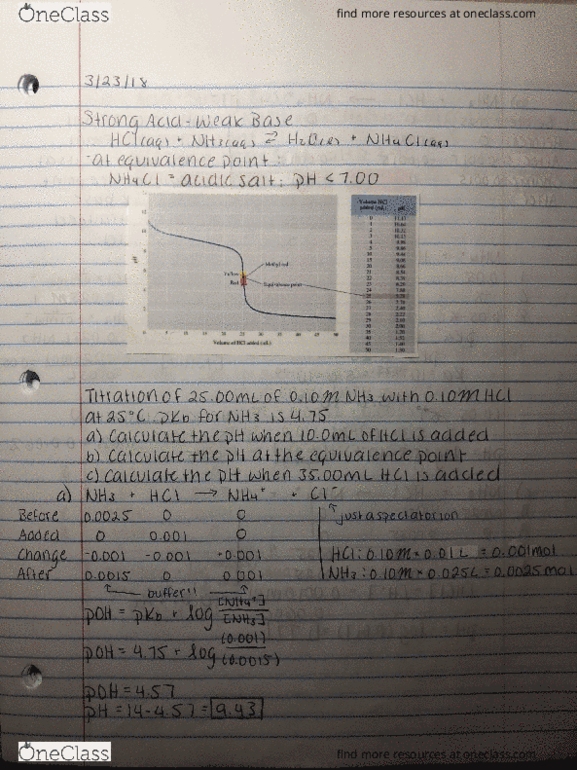 OneClass
find more resources at oneclass.com
3/23/18
Strong Acid-Weak Base
HCl(aq) + NH3(aq) ⇌ H2O(l) + NH4Cl(aq)
-at equivalence point:
NH4Cl = acidic salt: pH < 7.00
Volume HCl added (mL) pH
Methyl red
Yellow
Red
Equivalence point
Volume of HCl added (mL)
Titration of 25.00mL of 0.10M NH3 with 0.10M HCl
at 25°C. pKb for NH3 is 4.75
a) Calculate the pH when 10.0mL of HCl is added
b) Calculate the pH at the equivalence point
c) Calculate the pH when 35.00mL HCl is added
a) NH3 + HCl → NH4+ + Cl-
Before 0.0025 0 0 ↑ just a spectator ion
Added 0 0.001 0
Change -0.001 -0.001 +0.001 HCl: 0.10M × 0.01L = 0.001mol
After 0.0015 0 0.001 NH3: 0.10M × 0.025L = 0.0025mol
buffer!!
pOH = pKb + log [NH4+]/[NH3]
pOH = 4.75 + log (0.001)/(0.0015)
pOH = 4.57
pH = 14-4.57 = 9.43
OneClass
find more resources at oneclass.com